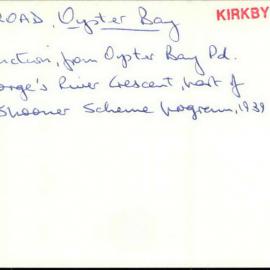 ROAD, Oyster Bay
KIRKBY
nction, from Oyster Bay Rd.
orge's River Crescent, part of
Spooner Scheme program, 1939